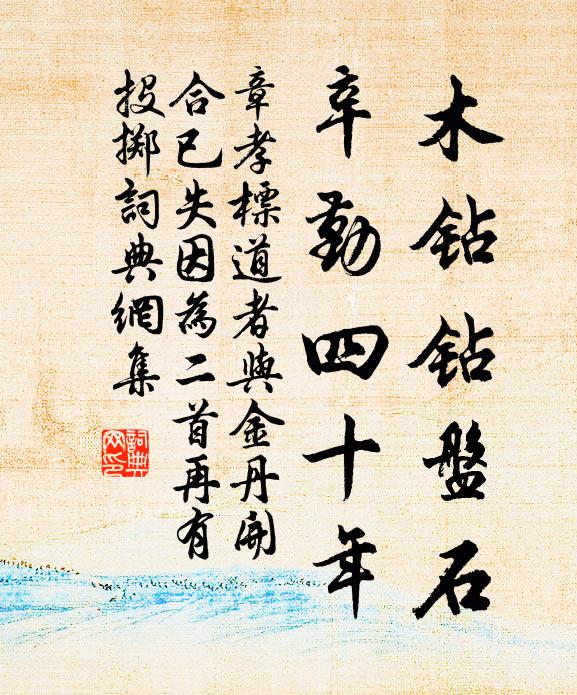 木钻钻盤石
辛勤四十年
章孝標道者與金丹開
合已失因為二首再有
投擲詞典網集
詞典
网印